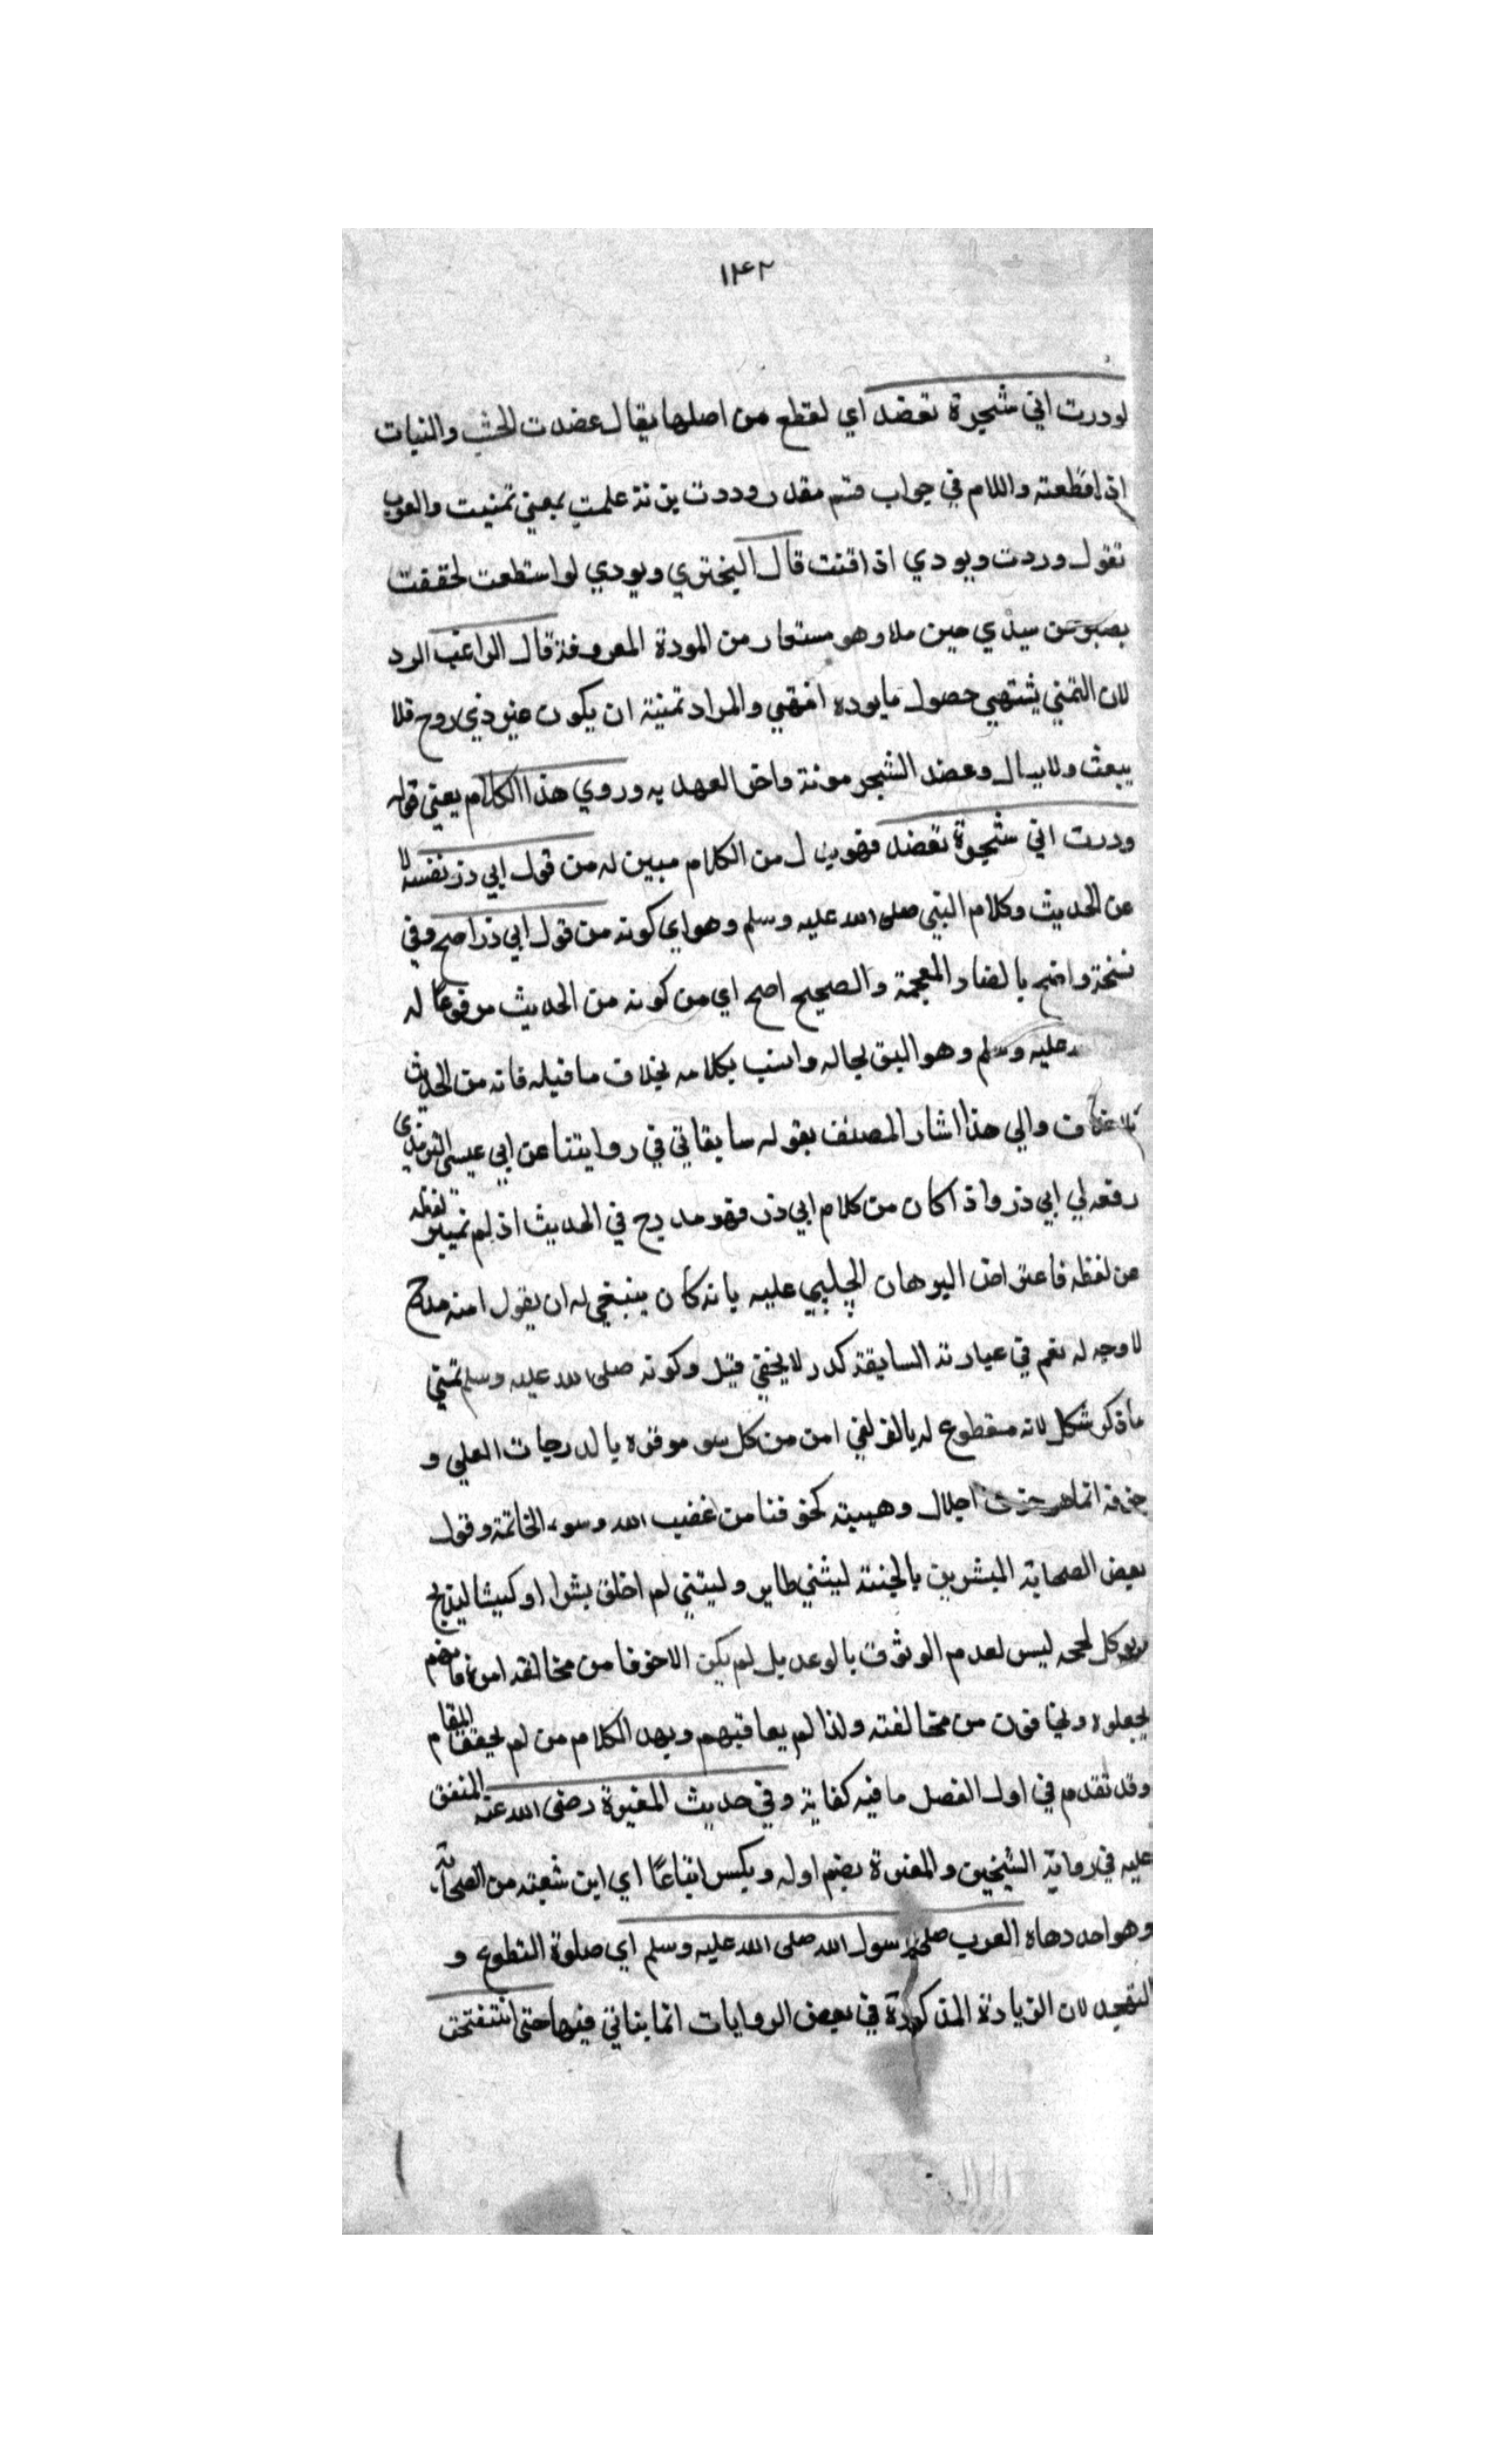 ١٤٢
لوددت اني شجرة تعضد اي لقطع من اصلها يقال عضدت الخشب والنبات
اذا قطعته واللام في جواب قسم مقدر ووددت بزنة علمت بمعني تمنيت والعرب
تقول وددت وبودي اذا تمنت قال البختري وبودي لو استطعت لحققت
بصبر عن سيدي حين ملا وهو مستعار من المودة المعروفة قال الراغب الود
لان التمني يشتهي حصول مايوده انتهي والمراد تمنية ان يكون غير ذي روح فلا
يبعث ولايسال وعضد الشجر موتة واخر العهد به وروي هذا الكلام يعني قوله
وددت اني شجرة تعضد فهو بدل من الكلام مبين له من قول ابي ذر نفسه لا
من الحديث وكلام النبي صلى الله عليه وسلم وهو اي كونه من قول ابي ذر اصح وفي
نسخة واضح بالضاد المعجمة والصحيح اصح اي من كونه من الحديث مرفوعًا له
عليه وسلم وهو اليق بحاله وانسب بكلامه بخلاف ما قبله فانه من الحديث
بلا خلاف والي هذا اشار المصنف بقوله سابقاتي في روايتنا عن ابي عيسى الترمذي
رفعه لي ابي ذر واذا كان من كلام ابي ذر فهو مدرج في الحديث اذ لم تميز لفظه
من لفظه فاعتراض البرهان الچلبي عليه بانه كان ينبغي له ان يقول انه مدرج
لا وجه له نعم في عبارته السابقة كدر لا يخفي قيل وكونه صلى الله عليه وسلم تمني
ماذكر شكل لانه مقطوع له بالزلفي امن من كل سو موفره بالدرجات العلي و
خوفه انما هو اجلال وهيبة كخوفنا من غضب الله وسوء الخاتمة وقول
بعض الصحابة المبشرين بالجنة ليتني طاير وليتني لم اخلق بشرا او كبشا ليذبح
ويوكل لحمه ليس لعدم الوثوق بالوعد بل لم يكن الا خوفا من مخالفة امره فانهم
لجعلوه ويخافون من مخالفته ولذا لم يعاقبهم وبهد الكلام من لم يحقق المقام
وقد تقدم في اول الفصل ما فيه كفاية وفي حديث المغيرة رضى الله عنه المتفق
عليه في رواية الشيخين والمغيرة بضم اوله ويكسر اتباعًا اي ابن شعبة من الصحابة
وهو احد دهاة العرب صلى رسول الله صلى الله عليه وسلم اي صلوة التطوع و
التهجد لان الزيادة المذكورة في بعض الروايات انما يتاتي فيها حتى انتفخت